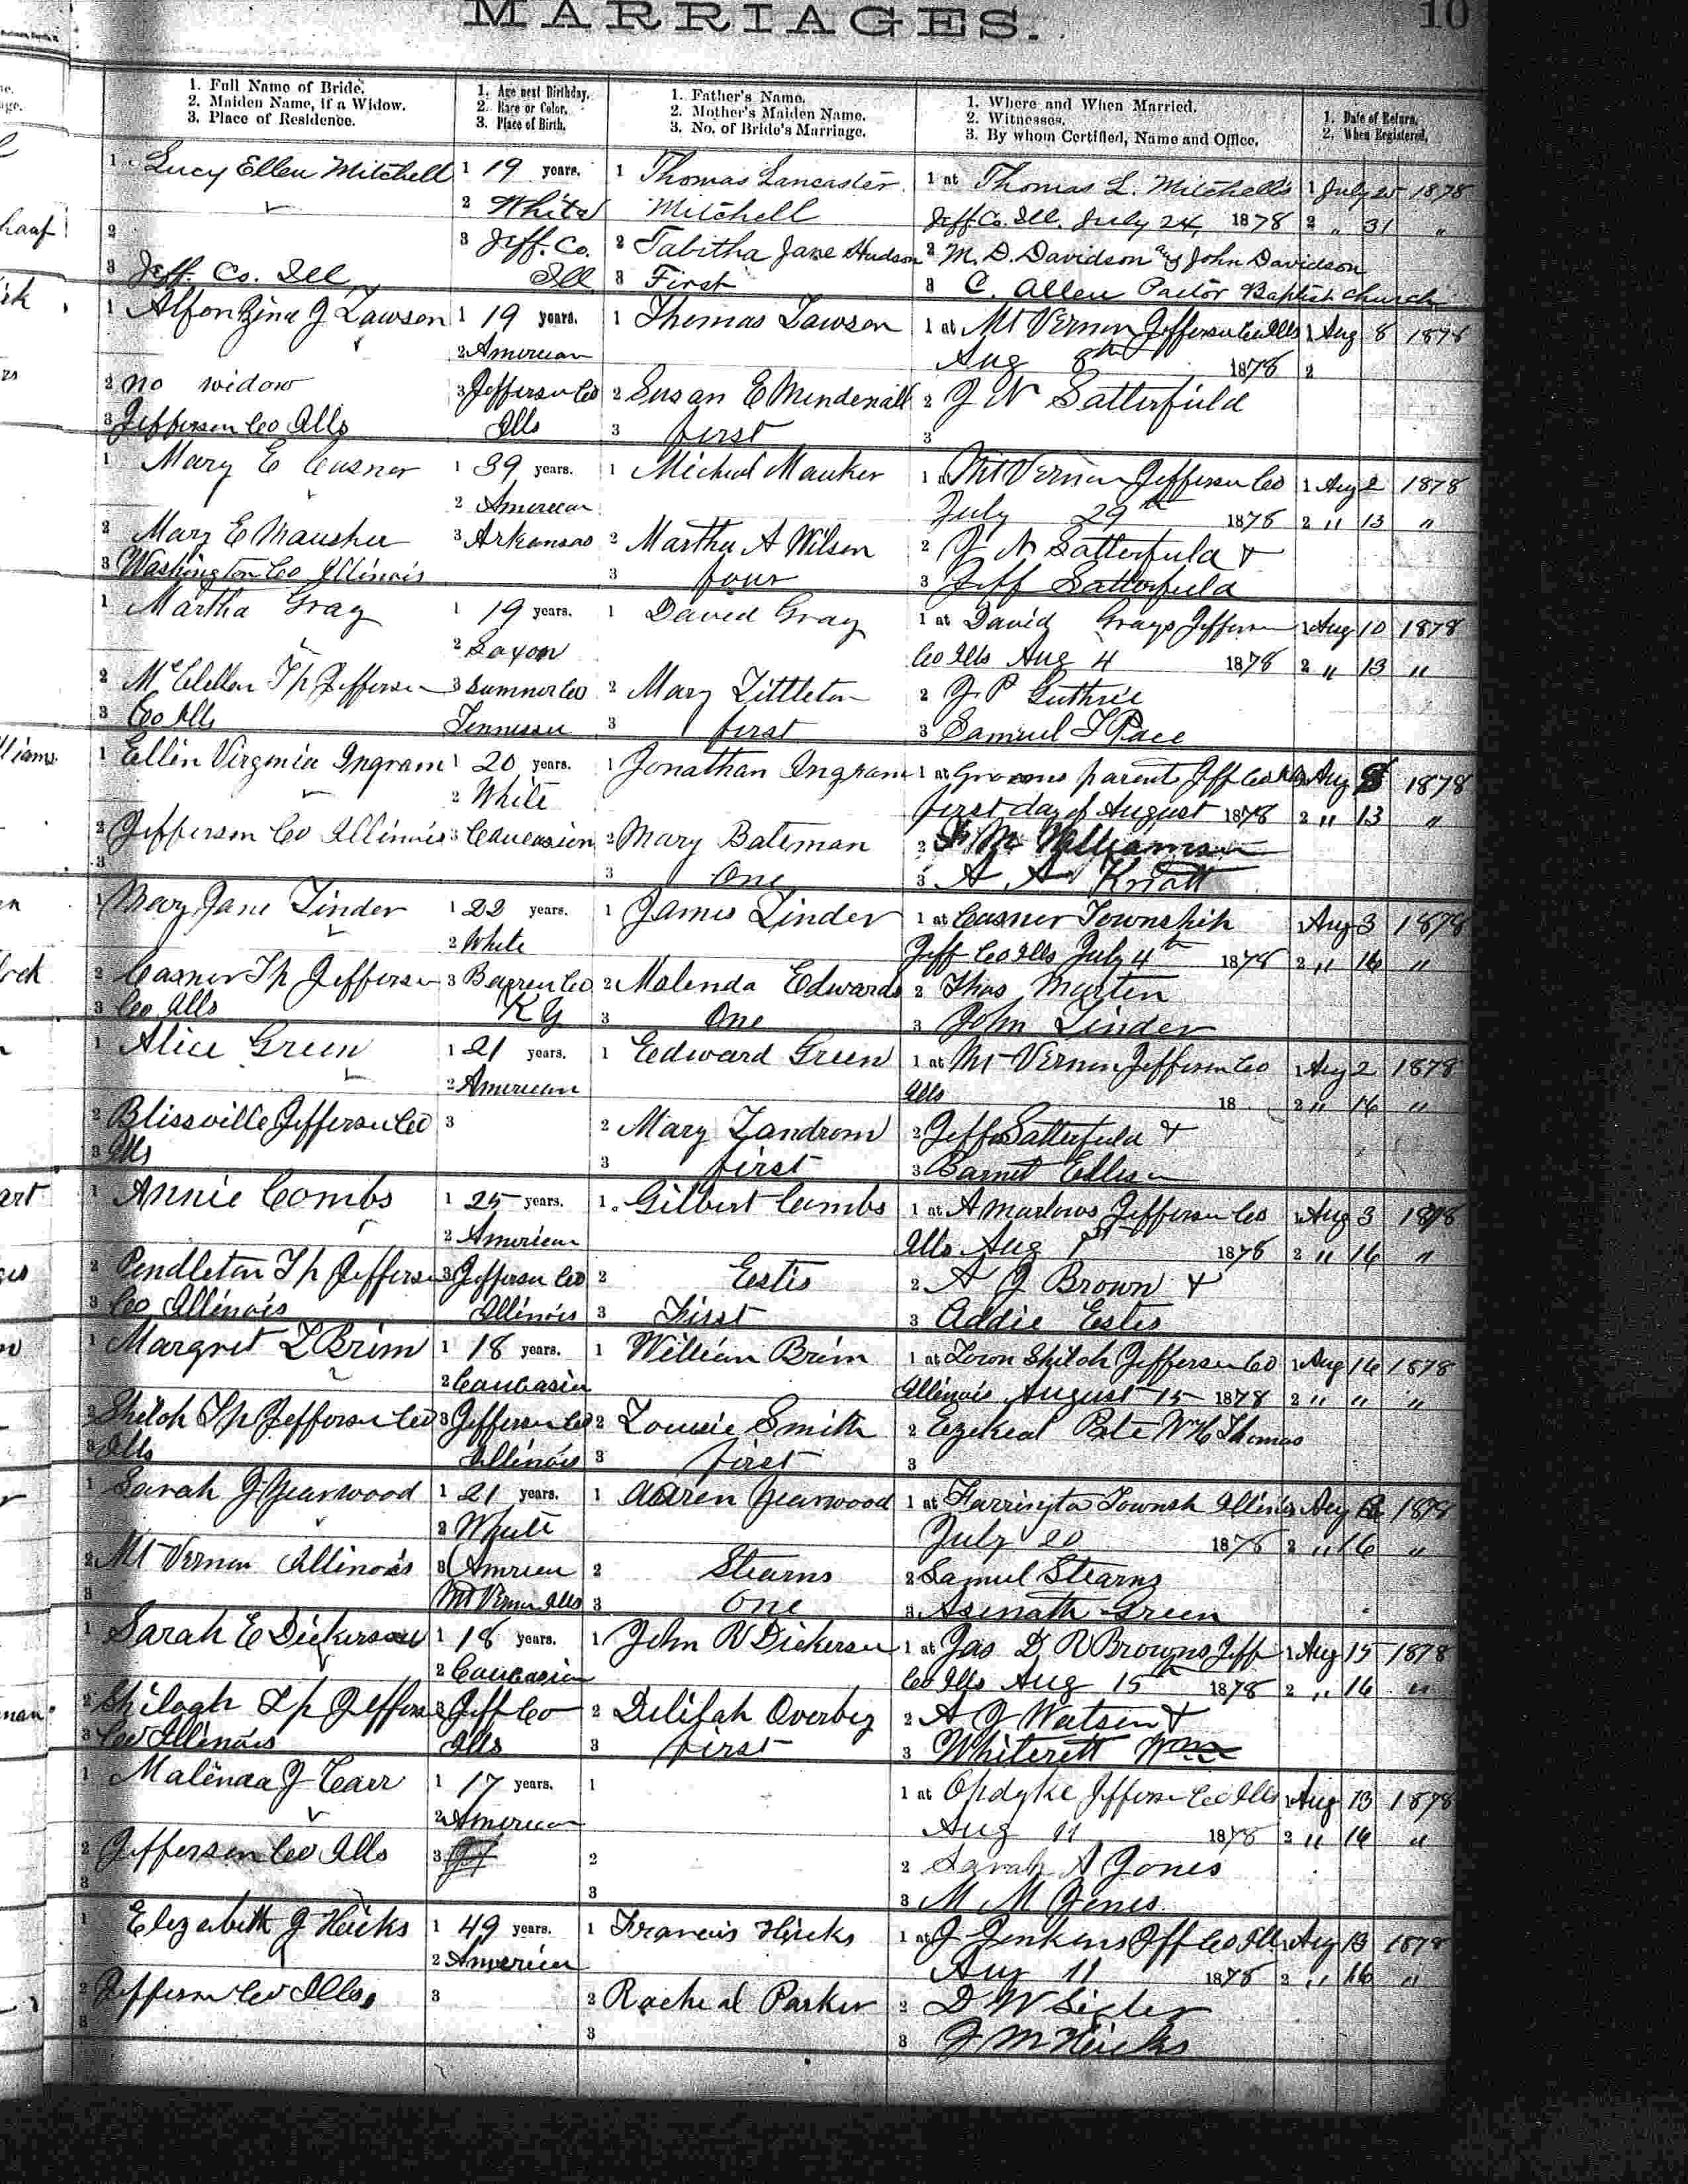 MARRIAGES.
10
1. Full Name of Bride.
2. Maiden Name, if a Widow.
3. Place of Residence.
1. Age next Birthday.
2. Race or Color.
3. Place of Birth.
1. Father's Name.
2. Mother's Maiden Name.
3. No. of Bride's Marriage.
1. Where and When Married.
2. Witnesses.
3. By whom Certified, Name and Office.
1. Date of Return.
2. When Registered.
1 Lucy Ellen Mitchell
2
3 Jeff. Co. Ill
1 19 years.
2 White
3 Jeff. Co.
Ill.
1 Thomas Lancaster
Mitchell
2 Tabitha Jane Hudson
3 First
1 at Thomas L. Mitchell's
Jeff Co. Ill. July 24, 1878
2 M. D. Davidson and John Davidson
3 C. Allen Pastor Baptist church
1 July 25 1878
2 " 31 "
1 Alfonzine J Lawson
2 no widow
3 Jefferson Co Ills
1 19 years.
2 American
3 Jefferson Co
Ills
1 Thomas Lawson
2 Susan E Mendenall
3 first
1 at Mt Vernon Jefferson Co Ills
Aug 8th 1878
2 J N Satterfield
3
1 Aug 8 1878
2
1 Mary E Casner
2 Mary E Mausher
3 Washington Co Illinois
1 39 years.
2 American
3 Arkansas
1 Micheal Mauker
2 Martha A Wilson
3 four
1 at Mt Vernon Jefferson Co
July 29th 1878
2 J N Satterfield &
3 Jeff Satterfield
1 Aug 2 1878
2 " 13 "
1 Martha Gray
2 McClellan Tp Jefferson
3 Co Ills
1 19 years.
2 Saxon
3 Sumner Co
Tennessee
1 David Gray
2 Mary Littleton
3 first
1 at David Grays Jefferson
Co Ills Aug 4 1878
2 J P Guthrie
3 Samuel T Pace
1 Aug 10 1878
2 " 13 "
1 Ellin Virginia Ingram
2 Jefferson Co Illinois
3
1 20 years.
2 White
3 Caucasien
1 Jonathan Ingram
2 Mary Bateman
3 One
1 at Grooms parents Jeff Co Ills
first day of August 1878
2 M Williamson
3 A A Knatt
1 Aug 1878
2 " 13 "
1 Mary Jane Linder
2 Casner Tp Jefferson
3 Co Ills
1 22 years.
2 White
3 Barren Co
Ky
1 James Linder
2 Malenda Edwards
3 One
1 at Casner Township
Jeff Co Ills July 4th 1878
2 Thos Martin
3 John Linder
1 Aug 3 1878
2 " 16 "
1 Alice Green
2 Blissville Jefferson Co
3 Ills
1 21 years.
2 American
3
1 Eedward Green
2 Mary Landrom
3 first
1 at Mt Vernon Jefferson Co
Ills 18
2 Jeff Satterfield &
3 Barnet Ellison
1 Aug 2 1878
2 " 16 "
1 Annie Combs
2 Pendleton Tp Jefferson
3 Co Illinois
1 25 years.
2 American
3 Jefferson Co
Illinois
1 Gilbert Combs
2 Estis
3 First
1 at A Marlows Jefferson Co
Ills Aug 1st 1878
2 A J Brown &
3 Addie Estis
1 Aug 3 1878
2 " 16 "
1 Margret L Brim
2 Shiloh Tp Jefferson Co
3 Ills
1 18 years.
2 Caucasien
3 Jefferson Co
Illinois
1 William Brim
2 Louisie Smith
3 first
1 at Town Shiloh Jefferson Co
Illinois August 15 1878
2 Ezekeal Pate Wm H Thomas
3
1 Aug 16 1878
2 " " "
1 Sarah J Yearwood
2 Mt Vernon Illinois
3
1 21 years.
2 White
3 Amrican
Mt Vernon Ills
1 Aaren Yearwood
2 Stearns
3 One
1 at Farrington Townsh Illinois
July 20 1878
2 Samuel Stearns
3 Asenath Green
1 Aug 1878
2 " 16 "
1 Sarah E Dickerson
2 Shiloah Tp Jefferson
3 Co Illinois
1 18 years.
2 Caucasien
3 Jeff Co
Ills
1 John R Dickerson
2 Delilah Overbey
3 first
1 at Jas D R Browns Jeff
Co Ills Aug 15th 1878
2 A J Watson &
3 Whiterett Wm
1 Aug 15 1878
2 " 16 "
1 Malinda J Carr
2 Jefferson Co Ills
3
1 17 years.
2 American
3
1
2
3
1 at Opdyke Jefferson Co Ills
Aug 11 1878
2 Sarah A Jones
3 M M Jones
1 Aug 13 1878
2 " 16 "
1 Elizabeth J Hicks
2 Jefferson Co Ills,
3
1 49 years.
2 American
3
1 Francis Hicks
2 Racheal Parker
3
1 at J Jenkins Jeff Co Ill
Aug 11 1878
2 D W Sigler
3 J M Hicks
1 Aug 13 1878
2 " 16 "